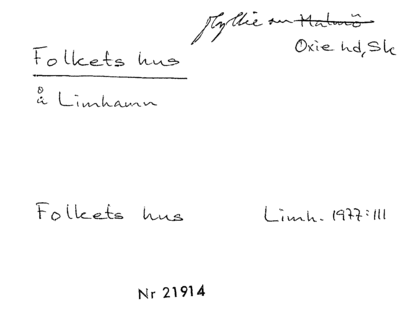 Hyllie sn Malmö
Oxie hd, Sk
Folkets hus
å Limhamn
Folkets hus Limh. 1977:III
Nr 21914